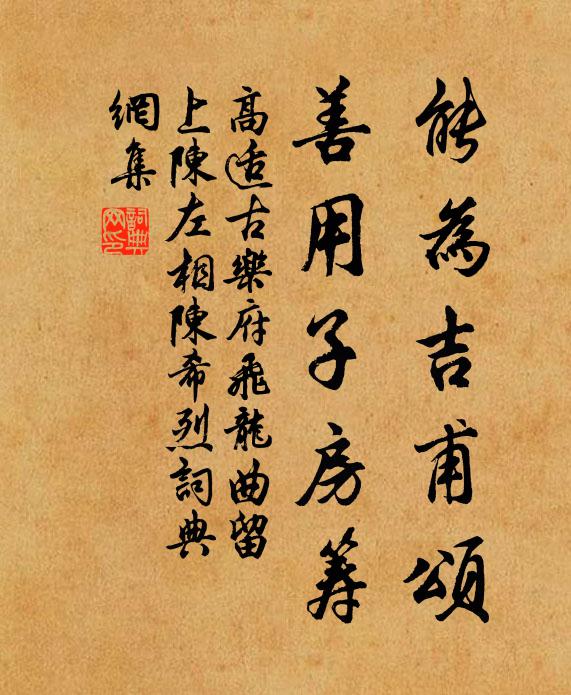 能為吉甫頌
善用子房筹
高适古樂府飛龍曲留
上陳左相陳希烈詞典
網集
詞典網印